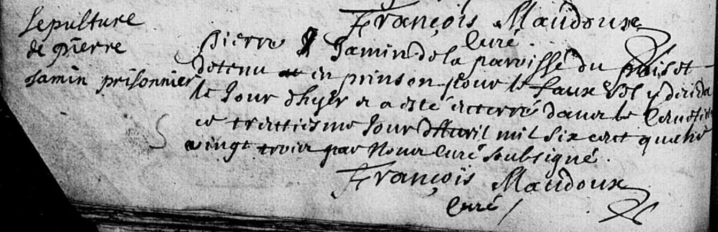 François Maudoux
curé
Sepulture
de pierre
Jamin prisonnier
pierre Jamin de la paroisse du
detenu en prison pour le faux decida
le Jour d'hyer a esté enterré dans le
ce trantiesme Jour d'Avril mil six cent quatre
vingt trois par Nous Curé soubsigné.
François Maudoux
curé